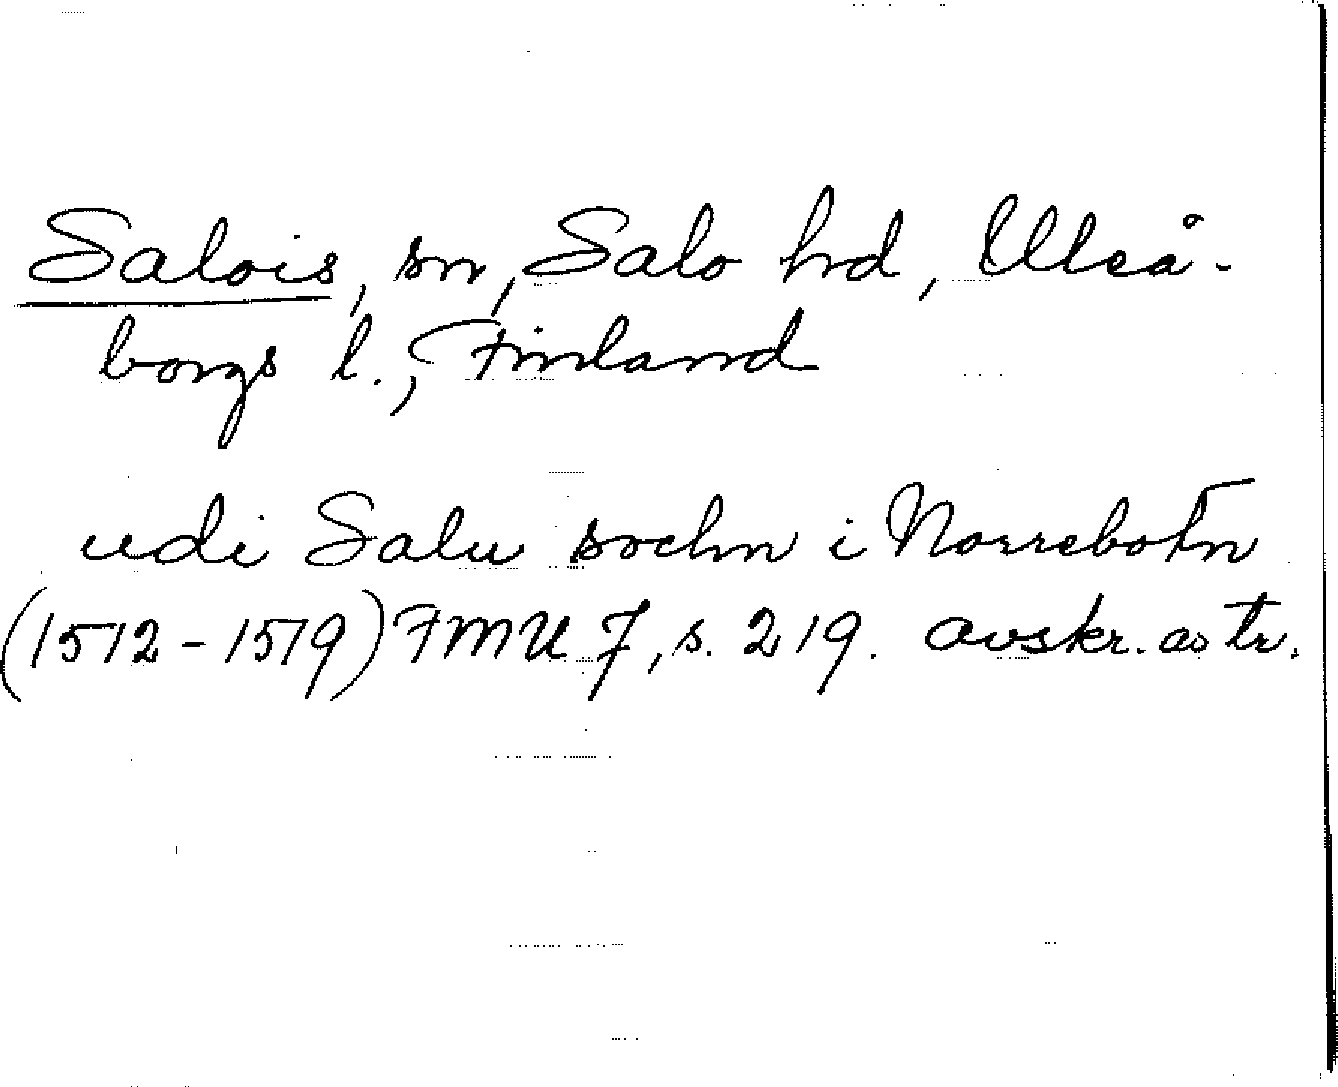 Salois, sn, Salo hrd, Uleå-
borgs l., Finland
udi Salu sochn i Norrebotn
(1512-1519) FMU 7, s. 219. avskr. o tr.